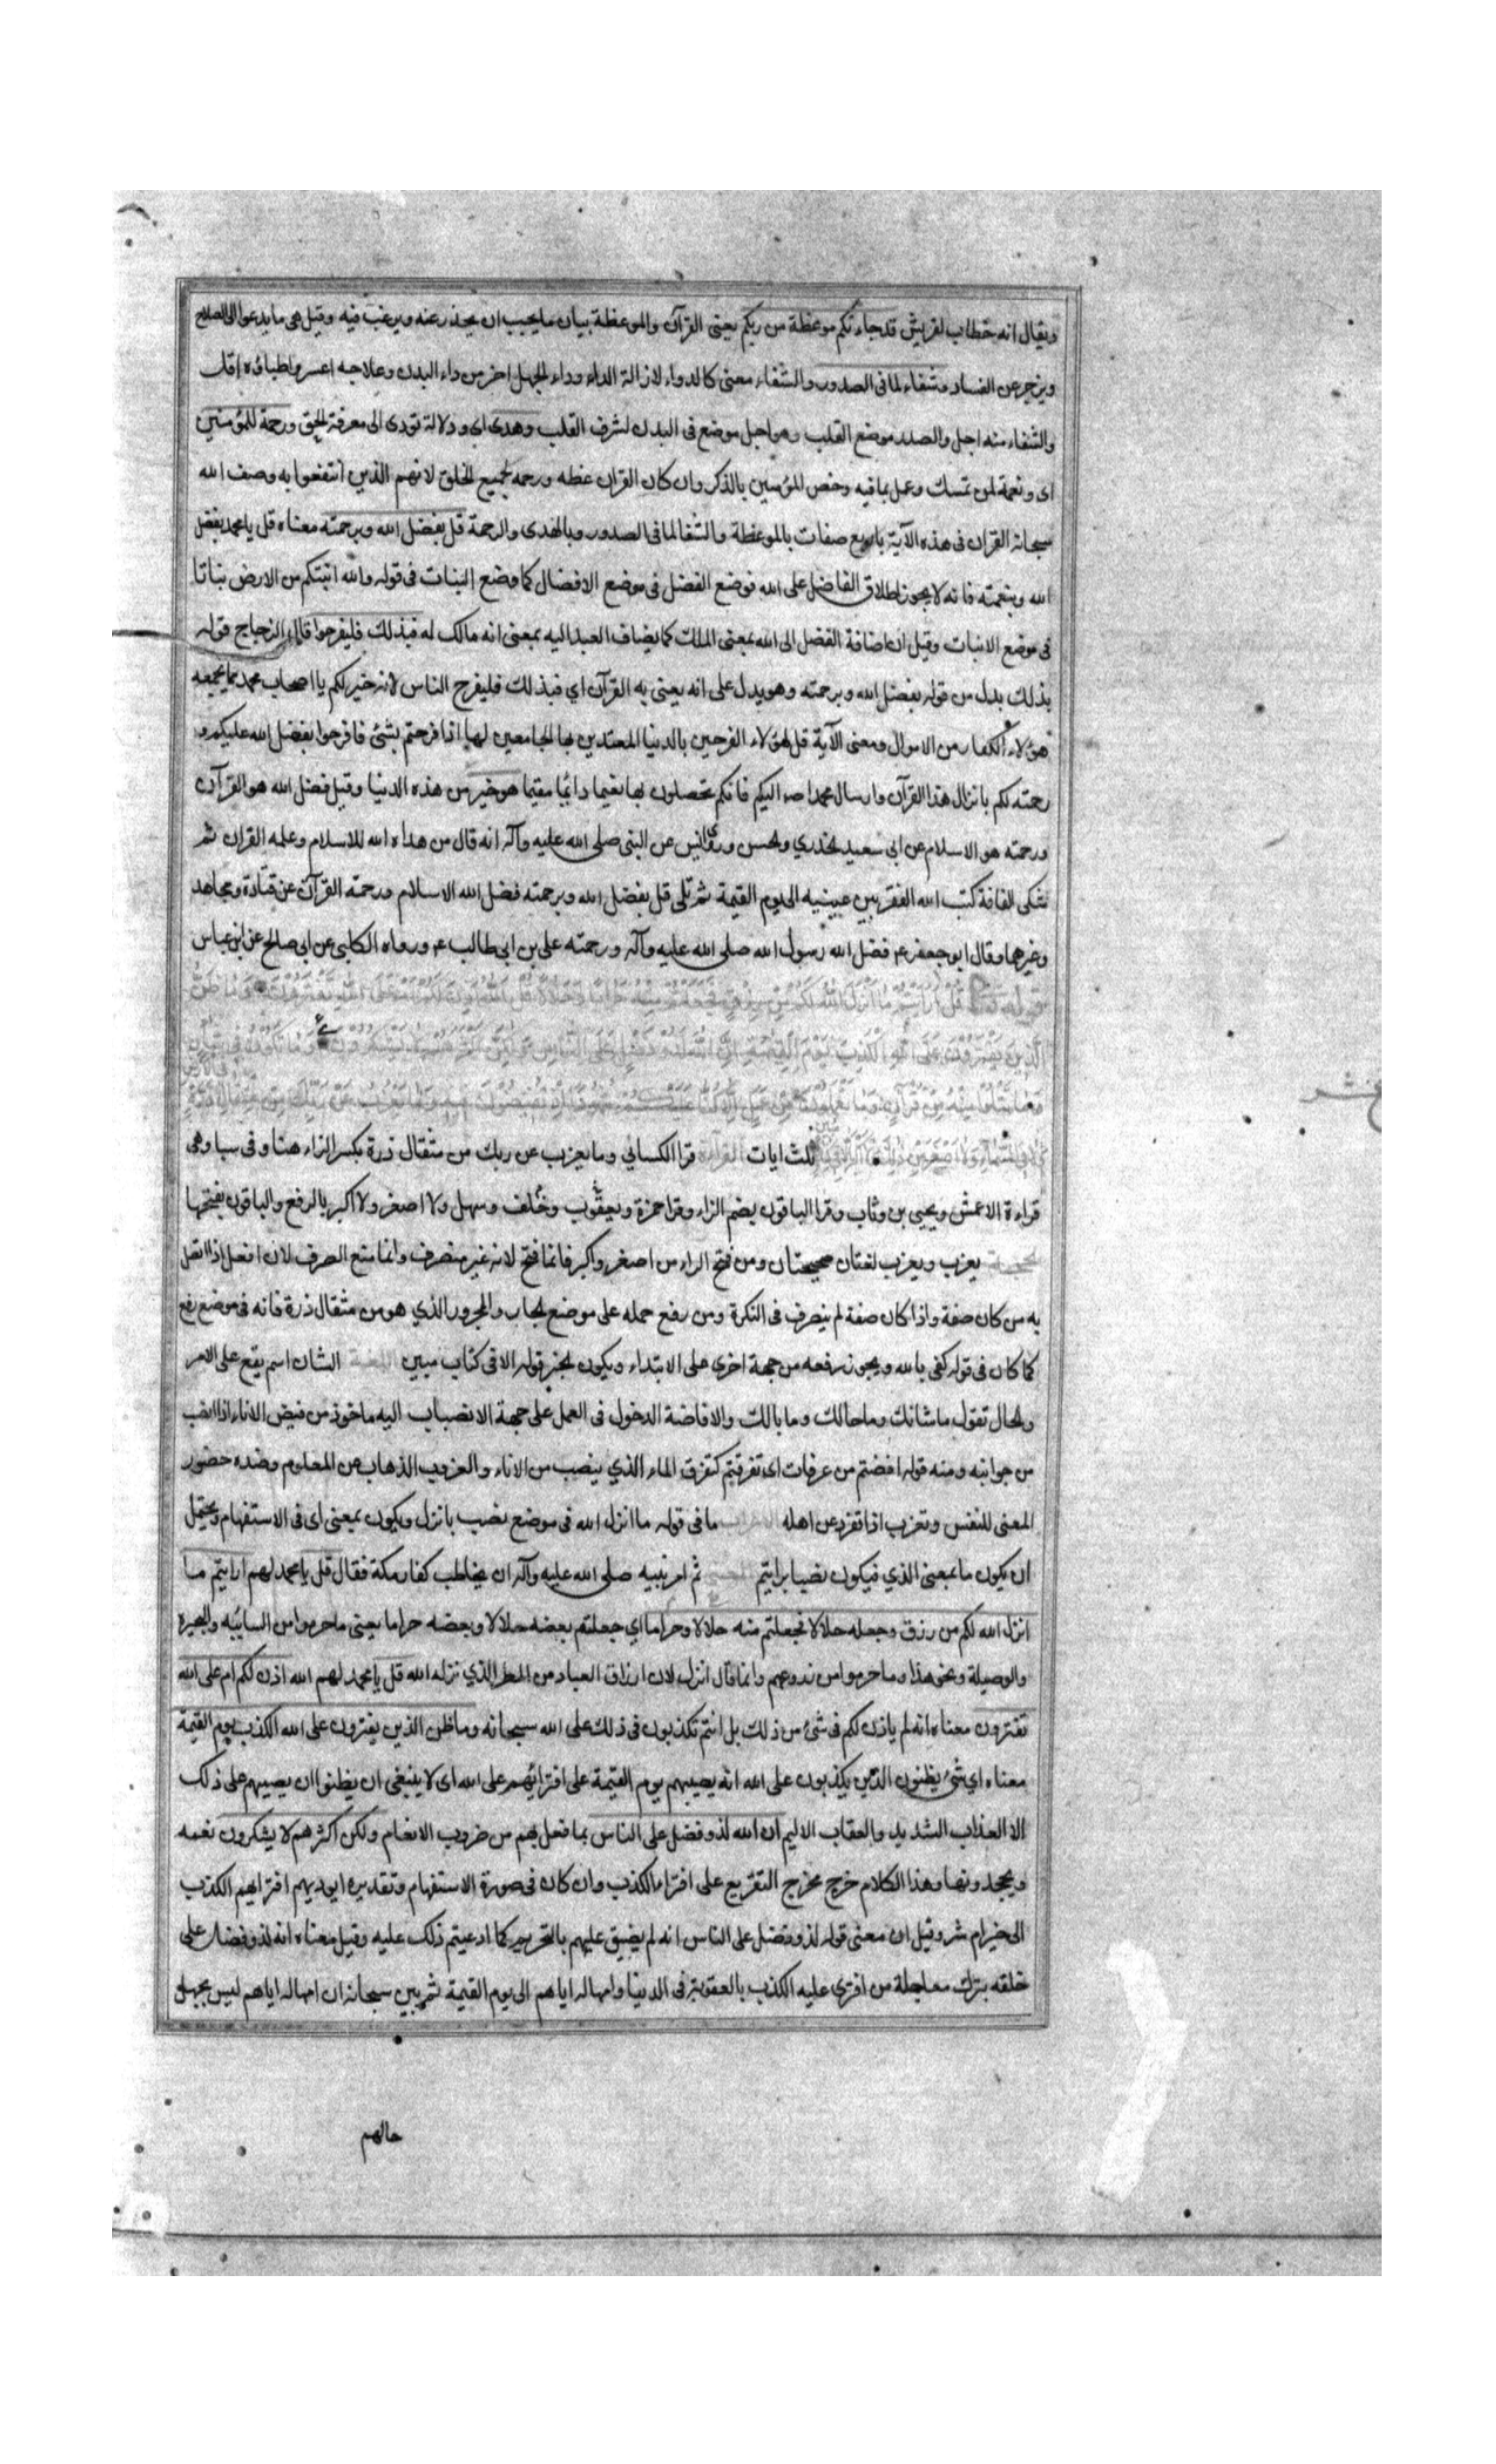 ويقال انه خطاب لقريش قد جاءتكم موعظة من ربكم يعنى القرآن والموعظة بيان ما يجب ان يحذر عنه ويرغب فيه وقيل هى ما يدعوا الى الصلاح
ويزجر عن الفساد وشفاء لما فى الصدور والشفاء معنى كالدواء لازالة الداء وداء الجهل اضر من داء البدن وعلاجه اعسر واطباؤه اقل
والشفاء منه اجل والصدر موضع القلب وهو اجل موضع فى البدن لشرف القلب وهدى اى ودلالة تؤدى الى معرفة الحق ورحمة للمؤمنين
اى ونعمة لمن تمسك وعمل بما فيه وخص المؤمنين بالذكر وان كان القران عظه ورحمه لجميع الخلق لانهم الذين انتفعوا به وصف الله
سبحانه القران فى هذه الآية باربع صفات بالموعظة والشفا لما فى الصدور وبالهدى والرحمة قل بفضل الله وبرحمته معناه قل يا محمد بفضل
الله وبنعمته فانه لا يجوز اطلاق الفاضل على الله فوضع الفضل فى موضع الافضال كما وضع النبات فى قوله والله انبتكم من الارض نباتا
فى موضع الانبات وقيل ان اضافة الفضل الى الله بمعنى الملك كما يضاف العبد اليه بمعنى انه مالك له فبذلك فليفرحوا قال الزجاج قوله
بذلك بدل من قوله بفضل الله وبرحمته وهو يدل على انه يعنى به القرآن اي فبذلك فليفرح الناس لانه خير لكم يا اصحاب محمد مما يجمعه
هؤلاء الكفار من الاموال ومعنى الآية قل لهؤلاء الفرحين بالدنيا المعتدين بها الجامعين لها اذا فرحتم بشئ فافرحوا بفضل الله عليكم و
رحمته لكم بانزال هذا القرآن وارسال محمد اليكم فانكم تحصلون بها نعيما دائما مقيما هو خير من هذه الدنيا وقيل فضل الله هو القرآن
ورحمته هو الاسلام عن ابى سعيد الخدري والحسن وروى انس عن النبى صلى الله عليه وآله انه قال من هداه الله للاسلام وعلمه القران ثم
شكى الفاقة كتب الله الفقر بين عينيه الى يوم القيمة ثم تلى قل بفضل الله وبرحمته فضل الله الاسلام ورحمته القرآن عن قتادة ومجاهد
وغيرهما وقال ابو جعفر ع فضل الله رسول الله صلى الله عليه وآله ورحمته على بن ابى طالب ع ورواه الكلبى عن ابى صالح عن ابن عباس
قُلْ أَرَأَيْتُمْ مَا أَنْزَلَ اللهُ لَكُمْ مِنْ رِزْقٍ فَجَعَلْتُمْ مِنْهُ حَرَامًا وَحَلَالًا قُلْ آللهُ أَذِنَ لَكُمْ أَمْ عَلَى اللهِ تَفْتَرُونَ وَمَا ظَنُّ
الَّذِينَ يَفْتَرُونَ عَلَى اللهِ الْكَذِبَ يَوْمَ الْقِيمَةِ إِنَّ اللهَ لَذُو فَضْلٍ عَلَى النَّاسِ وَلَكِنَّ أَكْثَرَهُمْ لَا يَشْكُرُونَ وَمَا تَكُونُ فِي شَأْنٍ
وَمَا تَتْلُوا مِنْهُ مِنْ قُرْآنٍ وَلَا تَعْمَلُونَ مِنْ عَمَلٍ إِلَّا كُنَّا عَلَيْكُمْ شُهُودًا إِذْ تُفِيضُونَ فِيهِ وَمَا يَعْزُبُ عَنْ رَبِّكَ مِنْ مِثْقَالِ ذَرَّةٍ
فى الارض
وَلَا فِي السَّمَاءِ وَلَا أَصْغَرَ مِنْ ذَلِكَ ثلث ايات القراءة قرا الكسائي وما يعزب عن ربك من مثقال ذرة بكسر الزاء هنا وفى سبا وهى
قراءة الاعمش ويحيى بن وثاب وقرا الباقون بضم الزاء وقرا حمزة ويعقوب وخلف وسهل ولا اصغر ولا اكبر بالرفع والباقون بفتحها
الحجة يعزب ويعزب لغتان صحيحتان ومن فتح الراء من اصغر واكبر فانما فتح لانه غير منصرف وانما منع الصرف لان افعل اذا اتصل
به من كان صفة واذا كان صفة لم ينصرف فى النكرة ومن رفع حمله على موضع الجار والمجرور الذي هو من مثقال ذرة فانه فى موضع رفع
كما كان فى قوله كفى بالله ويجوز رفعه من جهة اخرى على الابتداء ويكون الخبر قوله الا فى كتاب مبين اللغة الشان اسم يقع على الامر
والحال تقول ما شانك وما حالك وما بالك والافاضة الدخول فى العمل على جهة الانصباب اليه ماخوذ من فيض الاناء اذا انصب
من جوانبه ومنه قوله افضتم من عرفات اى تفرقتم كتفرق الماء الذي ينصب من الاناء والعزوب الذهاب عن المعلوم وضده حضور
المعنى للنفس وتعزب اذا تفرد عن اهله الاعراب ما فى قوله ما انزل الله فى موضع نصب بانزل ويكون بمعنى اى فى الاستفهام ويحتمل
ان يكون ما بمعنى الذي فيكون نصبا برايتم المعنى ثم امر نبيه صلى الله عليه وآله ان يخاطب كفار مكة فقال قل يا محمد لهم ارايتم ما
انزل الله لكم من رزق وجعله حلالا فجعلتم منه حلالا وحراما اي جعلتم بعضه حلالا وبعضه حراما يعنى ما حرموا من السائبه والبحيره
والوصيلة ونحو هذا وما حرموا من زروعهم وانما قال انزل لان ارزاق العباد من المطر الذي نزله الله قل يا محمد لهم الله اذن لكم ام على الله
تفترون معناه انه لم ياذن لكم فى شئ من ذلك بل انتم تكذبون فى ذلك على الله سبحانه وما ظن الذين يفترون على الله الكذب يوم القيمة
معناه اي شئ يظنون الذين يكذبون على الله انه يصيبهم يوم القيمة على افترائهم على الله اى لا ينبغى ان يظنوا ان يصيبهم على ذلك
الا العذاب الشديد والعقاب الاليم ان الله لذو فضل على الناس بما فعل بهم من ضروب الانعام ولكن اكثرهم لا يشكرون نعمه
ويجحدونها وهذا الكلام خرج مخرج التقريع على افتراء الكذب وان كان فى صورة الاستفهام وتقديره ايوديهم افتراهم الكذب
الى خير ام شر وقيل ان معنى قوله لذو فضل على الناس انه لم يضيق عليهم بالتحريم كما ادعيتم ذلك عليه وقيل معناه انه لذو فضل على
خلقه بترك معاجلة من افترى عليه الكذب بالعقوبة فى الدنيا وامهاله اياهم الى يوم القيمة ثم بين سبحانه ان امهاله اياهم ليس بجهل
حالهم